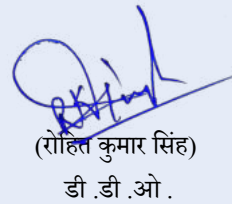 (रोहित कुमार सिंह)
डी .डी .ओ .